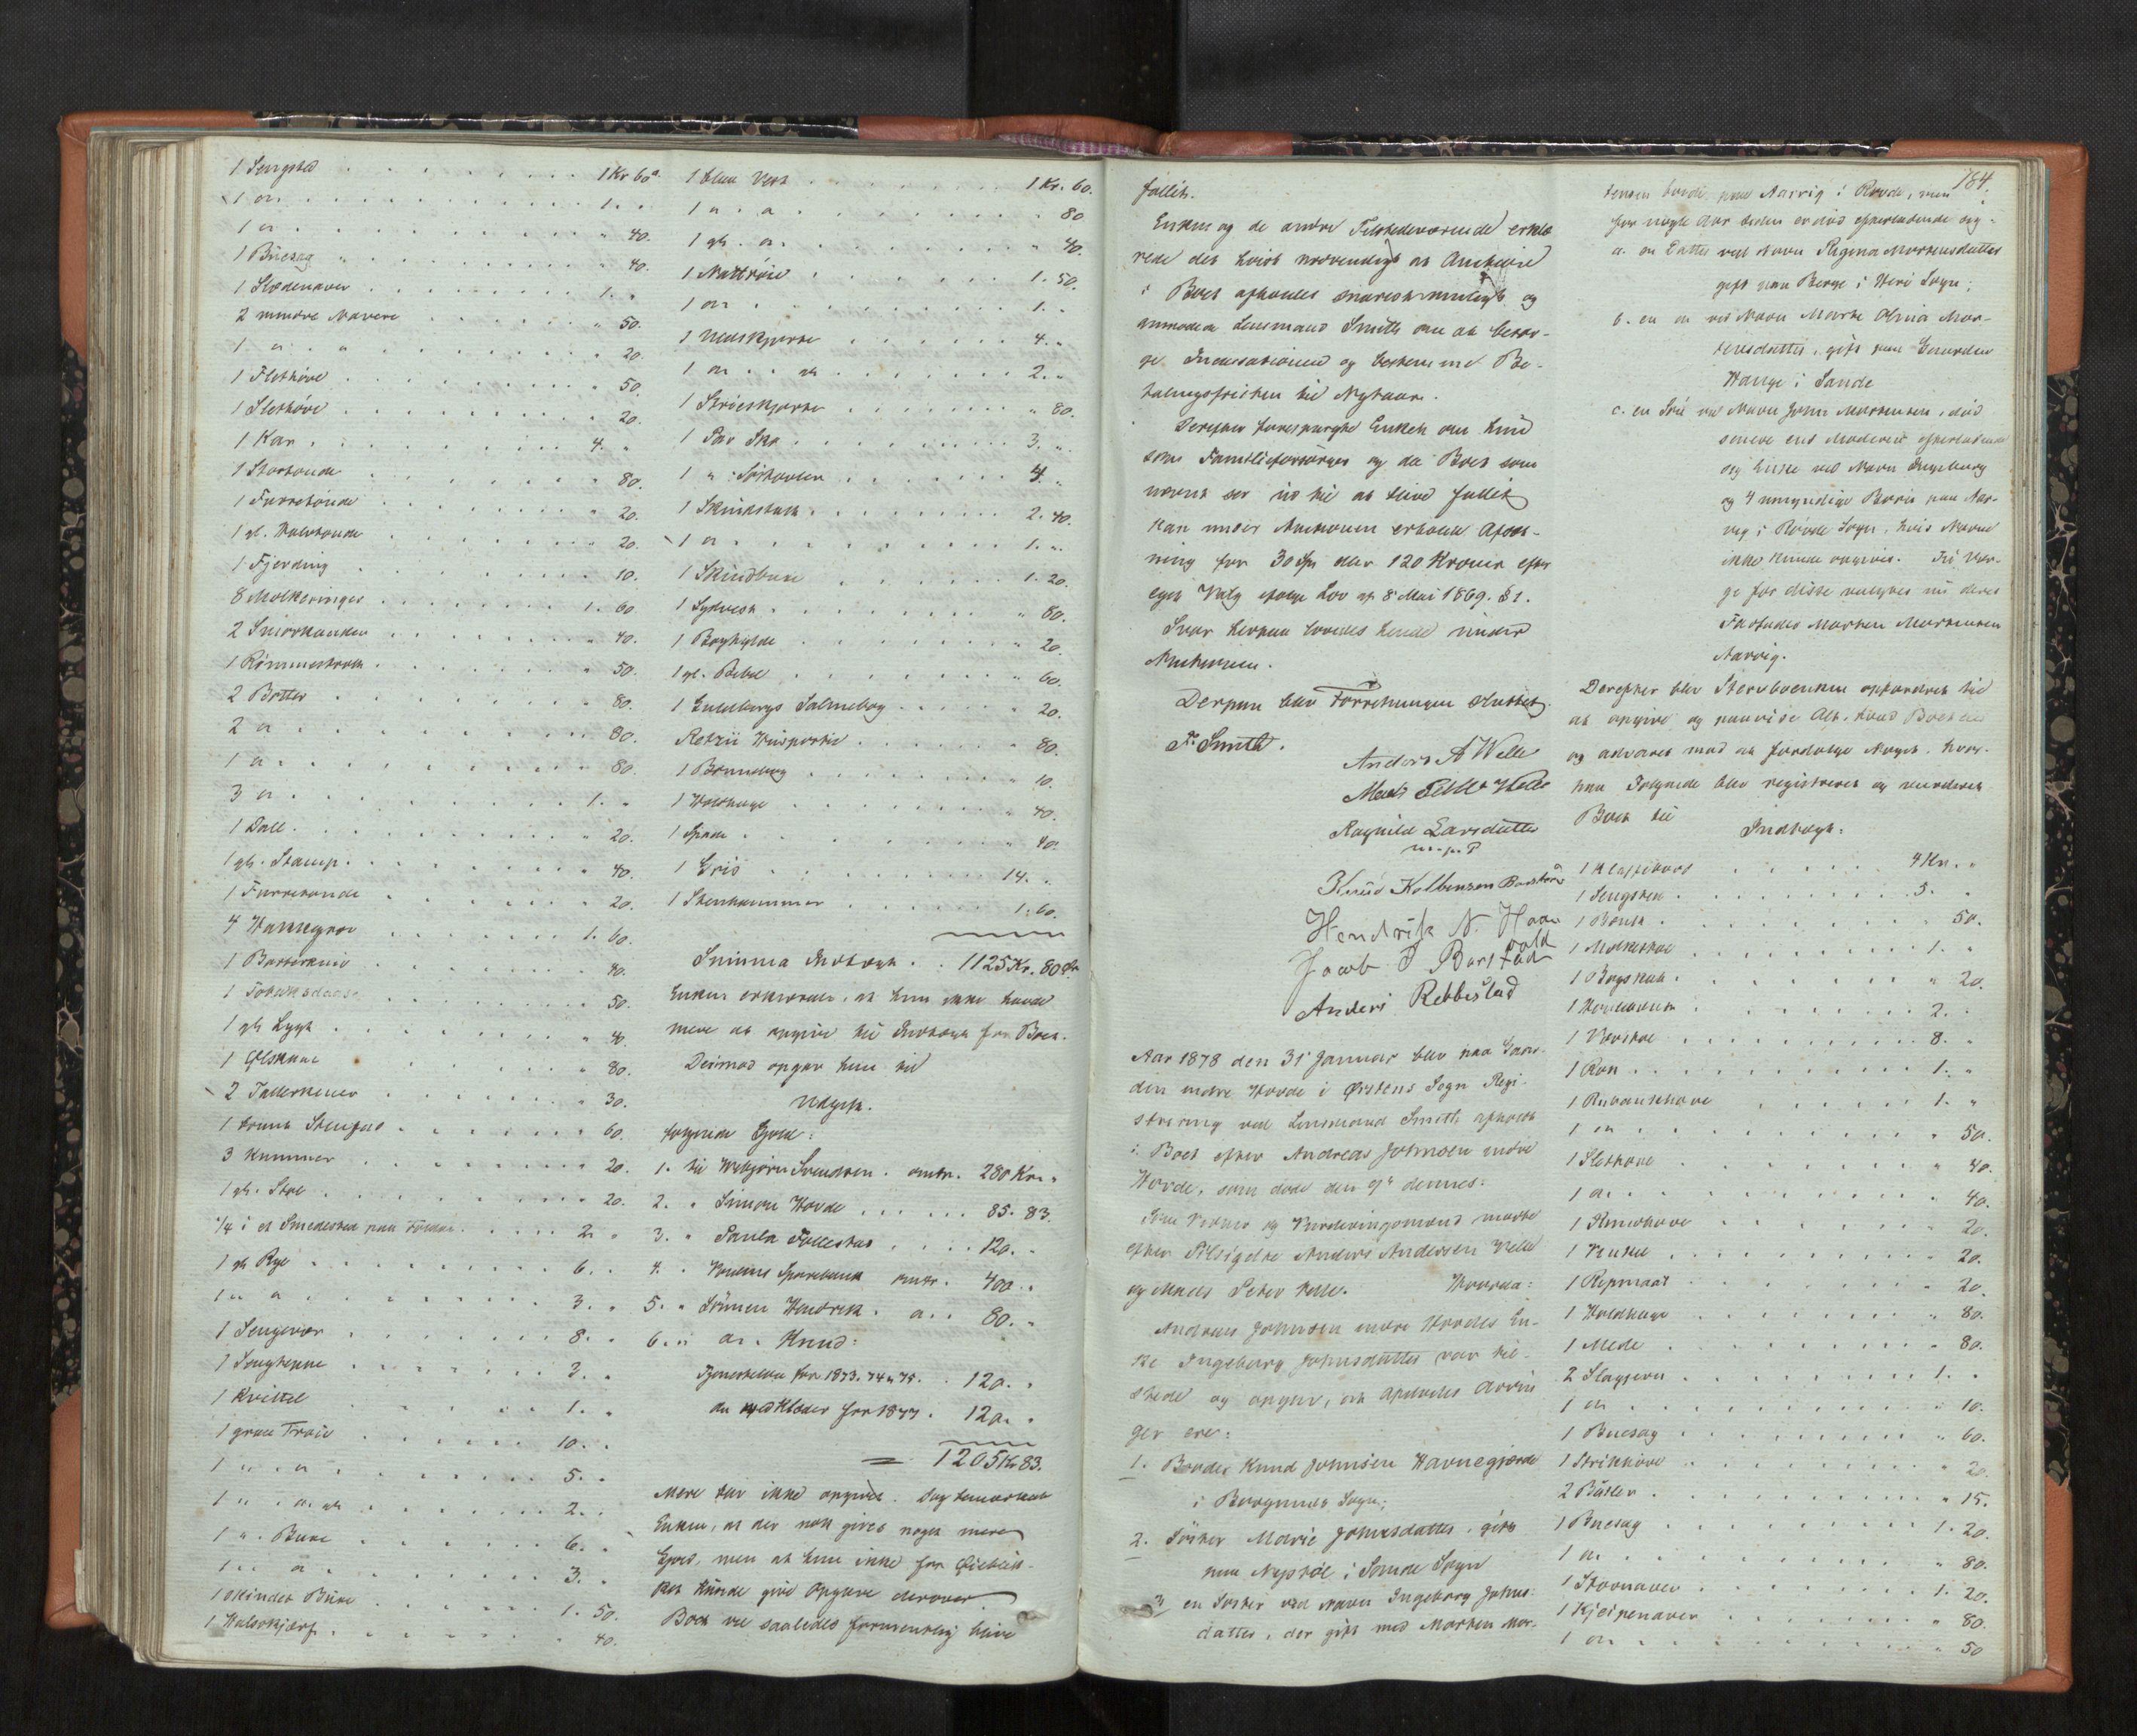 1 Sengsted . . . 1 Kr 60 ø
1 do . . . 1. "
1 do . . . " 40.
1 Buesag . . . " 40.
1 Slædenaver . . . 1. "
2 mindre Navere . . . " 50.
1 do . . . " 20.
1 Flethøvl . . . " 50.
1 Slethøvl . . . " 20.
1 Kar . . . 4. "
1 Stortønde . . . " 80.
1 Furretønde . . . " 20.
1 gl. Halvtønde . . . " 20.
1 Fjerding . . . " 10.
8 Molkeringer . . . 1. 60
2 Smørspander . . . " 40.
1 Rømmestrok . . . " 50.
2 Bøtter . . . " 80.
2 do . . . " 80.
1 do . . . " 80.
3 do . . . 1. "
1 Dall . . . " 20.
1 gl. Stamp . . . " 40.
1 Furretønde . . . " 20.
4 . . . 1. 60.
1 Barberkniv . . . " 40.
1 Tobaksdaase . . . " 50.
1 gl. Lygt . . . " 40.
1 Ølskaal . . . " 80.
2 Tallerkener . . . " 30.
1 Stenfad . . . " 60.
3 Kummer . . . " 20.
1 gl. Stol . . . " 20.
1/4 i et Smedested paa . . . 2. "
1 gl Rye . . . 6. "
1 " do . . . 3. "
1 Sengevær . . . 8. "
1 Sengtæppe . . . 2. "
1 Kvittel . . . 1. "
1 graa Trøie . . . 10. "
1 " do . . . 5. "
1 " do gl . . . 2. "
1 " Buxe . . . 6. "
1 " do . . . 3. "
1 Skindet Buxe . . . 1. 50.
1 Halstørklæ . . . " 40.
1 blaa Vest . . . 1 Kr. 60.
1 " do . . . " 80
1 gl. do . . . " 40.
1 Nattrøie . . . 1. 50.
1 do . . . 1. "
1 Uldskjorte . . . 4. "
1 do . . . 2. "
1 Strieskjorte . . . " 80.
1 Par Sko . . . 3. "
1 " Søstøvler . . . 4. "
1 Skindstak . . . 2. 40.
1 do . . . 1. "
1 Skindbuxe . . . 1. 20.
1 Sydvest . . . " 80.
1 Boghylde . . . " 20.
1 gl. Bibel . . . " 60.
1 Guldbergs Salmebog . . . " 20.
Rotzii Huuspostil . . . " 80.
1 Bønnebog . . . " 10.
1 . . . " 40.
1 Spade . . . " 40.
1 Gris . . . 14. "
1 Stenhammer . . . 1. 60.
Summa Indtægt . . 1125 Kr. 80 Ør
Enken erklærede, at hun ikke havde
mere at opgive til Indtægt for Boet.
Derimod opgav hun til
Udgift.
følgende Gjæld:
1. til Webjørn Svendsen . omtr. 280 Kr. "
2. " Simon Hovde . . . 85. 83.
3. " Paula Follestad . . . 120. "
4. " Voldens Sparebank omtr. 400. "
5. " Sønnen Hendrik . do . 80. "
6. " do . Knud:
Tjenesteløn for 1873. 74 & 75. . 120. "
do med Klæder for 1877 . 120. "
= 1205 Kr 83.
Mere blev ikke opgivet. Dog bemærkede
Enken, at der nok gives noget mere
Gjæld, men at hun ikke for Øieblik-
ket kunde give Opgave derover.
Boet vil saaledes formentlig blive
fallit.
Enken og de andre Tilstedeværende erklæ-
rede det hvist nødvendigt at Auktion
i Boet afholdes snarest muligt og
anmodede Lensmand Smith om at besør-
ge Incassationen og bestemme Be-
talingsfristen til Nytaar.
Derefter forespurgte Enken om hun
som Familieforsørger og da Boet som
nævnt ser ud til at blive fallit
kan under Auktionen erholde Afskriv-
ning for 30 Spd eller 120 Kroner efter
eget Valg ifølge Lov af 8 Mai 1869. § 1.
Svar herpaa lovedes hende under
Auktionen.
Derpaa blev Forretningen sluttet.
F. Smith.
Anders A Welle
Mads Peter Welle
Ragnild Larsdatter
m. p. P
Knud Kolbensen Barstad
Hendrik N. Haavold
Jacob J Barstad
Anders Rebbestad
Aar 1878 den 31 Januar blev paa Gaar-
den indre Hovde i Ørstens Sogn Regi-
strering ved Lensmand Smith afholdt
i Boet efter Andreas Johnsen indre
Hovde, som døde den 9de dennes.
Som Vidner og Vurderingsmænd mødte
efter Tilsigelse Anders Andersen Velle
og Mads Peter Velle. Hvorda:
Andreas Johnsen indre Hovdes En-
ke Ingeborg Johnsdatter var til-
stede og opgav, at Afdødes Arvin-
ger ere:
1. Broder Knud Johnsen Havnegjerde
i Borgunds Sogn;
2. Søster Marie Johnsdatter, gift
paa Nystøl i Sande Sogn
3. en Søster ved Navn Ingeborg Johns-
datter, der gift med Morten Mor-
184.
tensen boede paa Aarvig i Rovde, men
for nogle Aar siden er død efterladende sig:
a. en Datter ved Navn Regina Mortensdatter
gift paa Berge i Herø Sogn;
b. en do ved Navn Marte Olina Mor-
tensdatter, gift paa Gaarden
Hauge i Sande
c. en Søn ved Navn John Mortensen, død
senere end Moderen efterladende
sig Enke ved Navn Ingeborg
og 4 umyndige Børn paa Aar-
vig i Rovde Sogn, hvis Navne
ikke kunde opgives. Til Vær-
ge for disse valgtes nu deres
Farfader Morten Mortensen
Aarvig.
Derefter blev Stervboenken opfordret til
at opgive og paavise Alt, hvad Boet eied
og advaret mod at fordølge Noget, hvor-
paa Følgende blev registreret og vurderet
Boet til
Indtægt:
1 Klappebord . . . 4 Kr. "
1 Sengsted . . . 5. "
1 Bænk . . . " 50.
1 Molkestol . . . 1. "
1 Bogskab . . . " 20.
1 . . . 2. "
1 Vævstol . . . 8. "
1 Rok . . . 1. "
1 . . . 1. "
1 do . . . " 50.
1 Slethøvl . . . " 40.
1 do . . . " 40.
1 . . . " 20.
1 Vinkel . . . " 20.
1 . . . " 20.
1 . . . " 80.
1 Mede . . . " 80.
2 . . . 1. "
1 do . . . " 10.
1 Buesag . . . " 60.
1 . . . " 20.
2 . . . " 15.
1 Buesag . . . 1. 20.
1 do . . . " 80.
1 Stornaver . . . 1. 20.
1 Kjeipenaver . . . " 80.
1 do . . . " 50